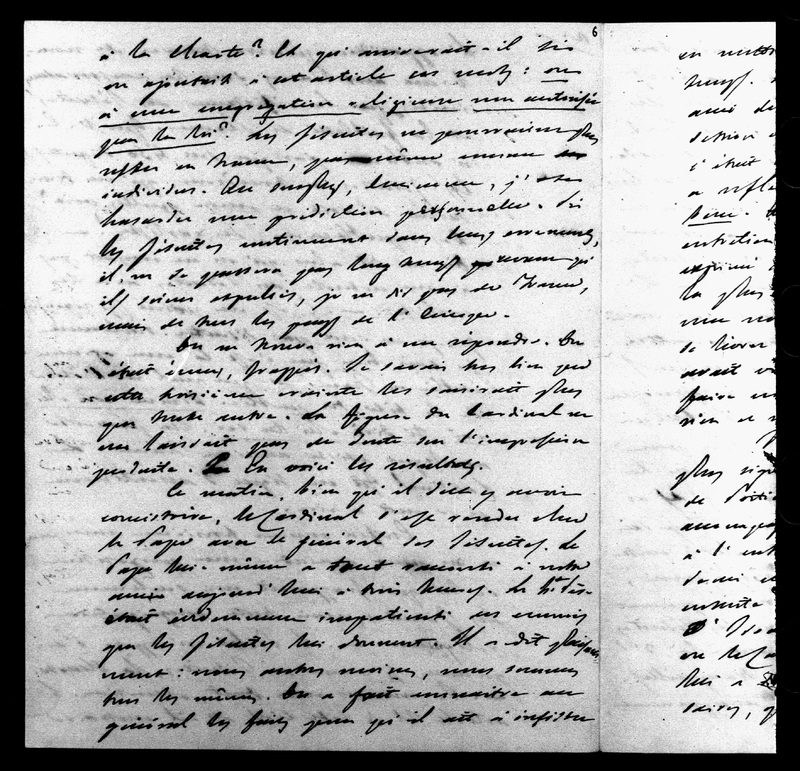 6
à la charte? Et qu'arriverait-il si
on ajoutait à cet article ces mots: ou
à une congrégation religieuse non autorisée
par la loi? Les Jésuites ne pourraient plus
rester en France, pas même comme
individus. Au surplus, Eminence, j'ose
hasarder une prédiction personnelle. Si
les Jésuites continuent dans leurs errements,
il ne se passera pas long temps avant qu'
ils soient expulsés, je ne dis pas de France,
mais de tous les pays de l'Europe.
On ne trouva rien à me répondre. On
était ému, frappé. Je savais très bien que
cette troisième crainte les saisirait plus
que toute autre. La figure du Cardinal ne
me laissait pas de doute sur l'impression
produite. En voici les résultats.
Ce matin, bien qu'il dût y avoir
consistoire, le Cardinal s'est rendu chez
le Pape avec le général des Jésuites. Le
Pape lui-même a tout raconté à notre
ami aujourd'hui à trois heures. Le St Père
était évidemment impatienté des ennuis
que les Jésuites lui donnent. Il a dit plaisam-
ment: nous autres moines, nous sommes
tous les mêmes. On a fait connaître au
général les faits pour qu'il ait à
en
temps.
ami de
j'était
a
entretien
exprimé
la plus
une
de
avait
faire
rien
plus
de
à l'
ensuite
ou le Ca
lui a